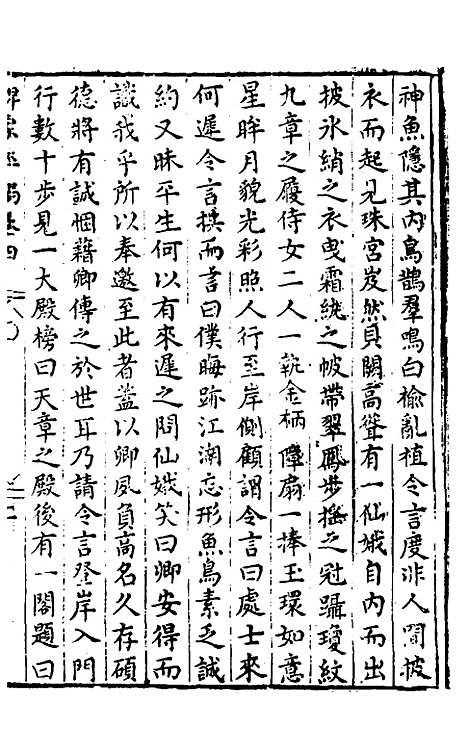 神魚隱其内烏鵲羣鳴白榆亂植令言度非人間披
衣而起見珠宮岌然貝闕高聳有一仙娥自内而出
披氷綃之衣曳霜紈之帔帶翠鳳步搖之冠躡瓊紋
九章之履侍女二人一執金柄障扇一捧玉環如意
星眸月貌光彩照人行至岸側顧謂令言曰處士來
何遲令言揖而言曰僕晦跡江湖忘形魚鳥素乏誠
約又昧平生何以有來遲之問仙娥笑曰卿安得而
識我乎所以奉邀至此者蓋以卿夙負高名久存碩
德將有誠悃藉卿傳之於世耳乃請令言登岸入門
行數十步見一大殿榜曰天章之殿後有一閣題曰